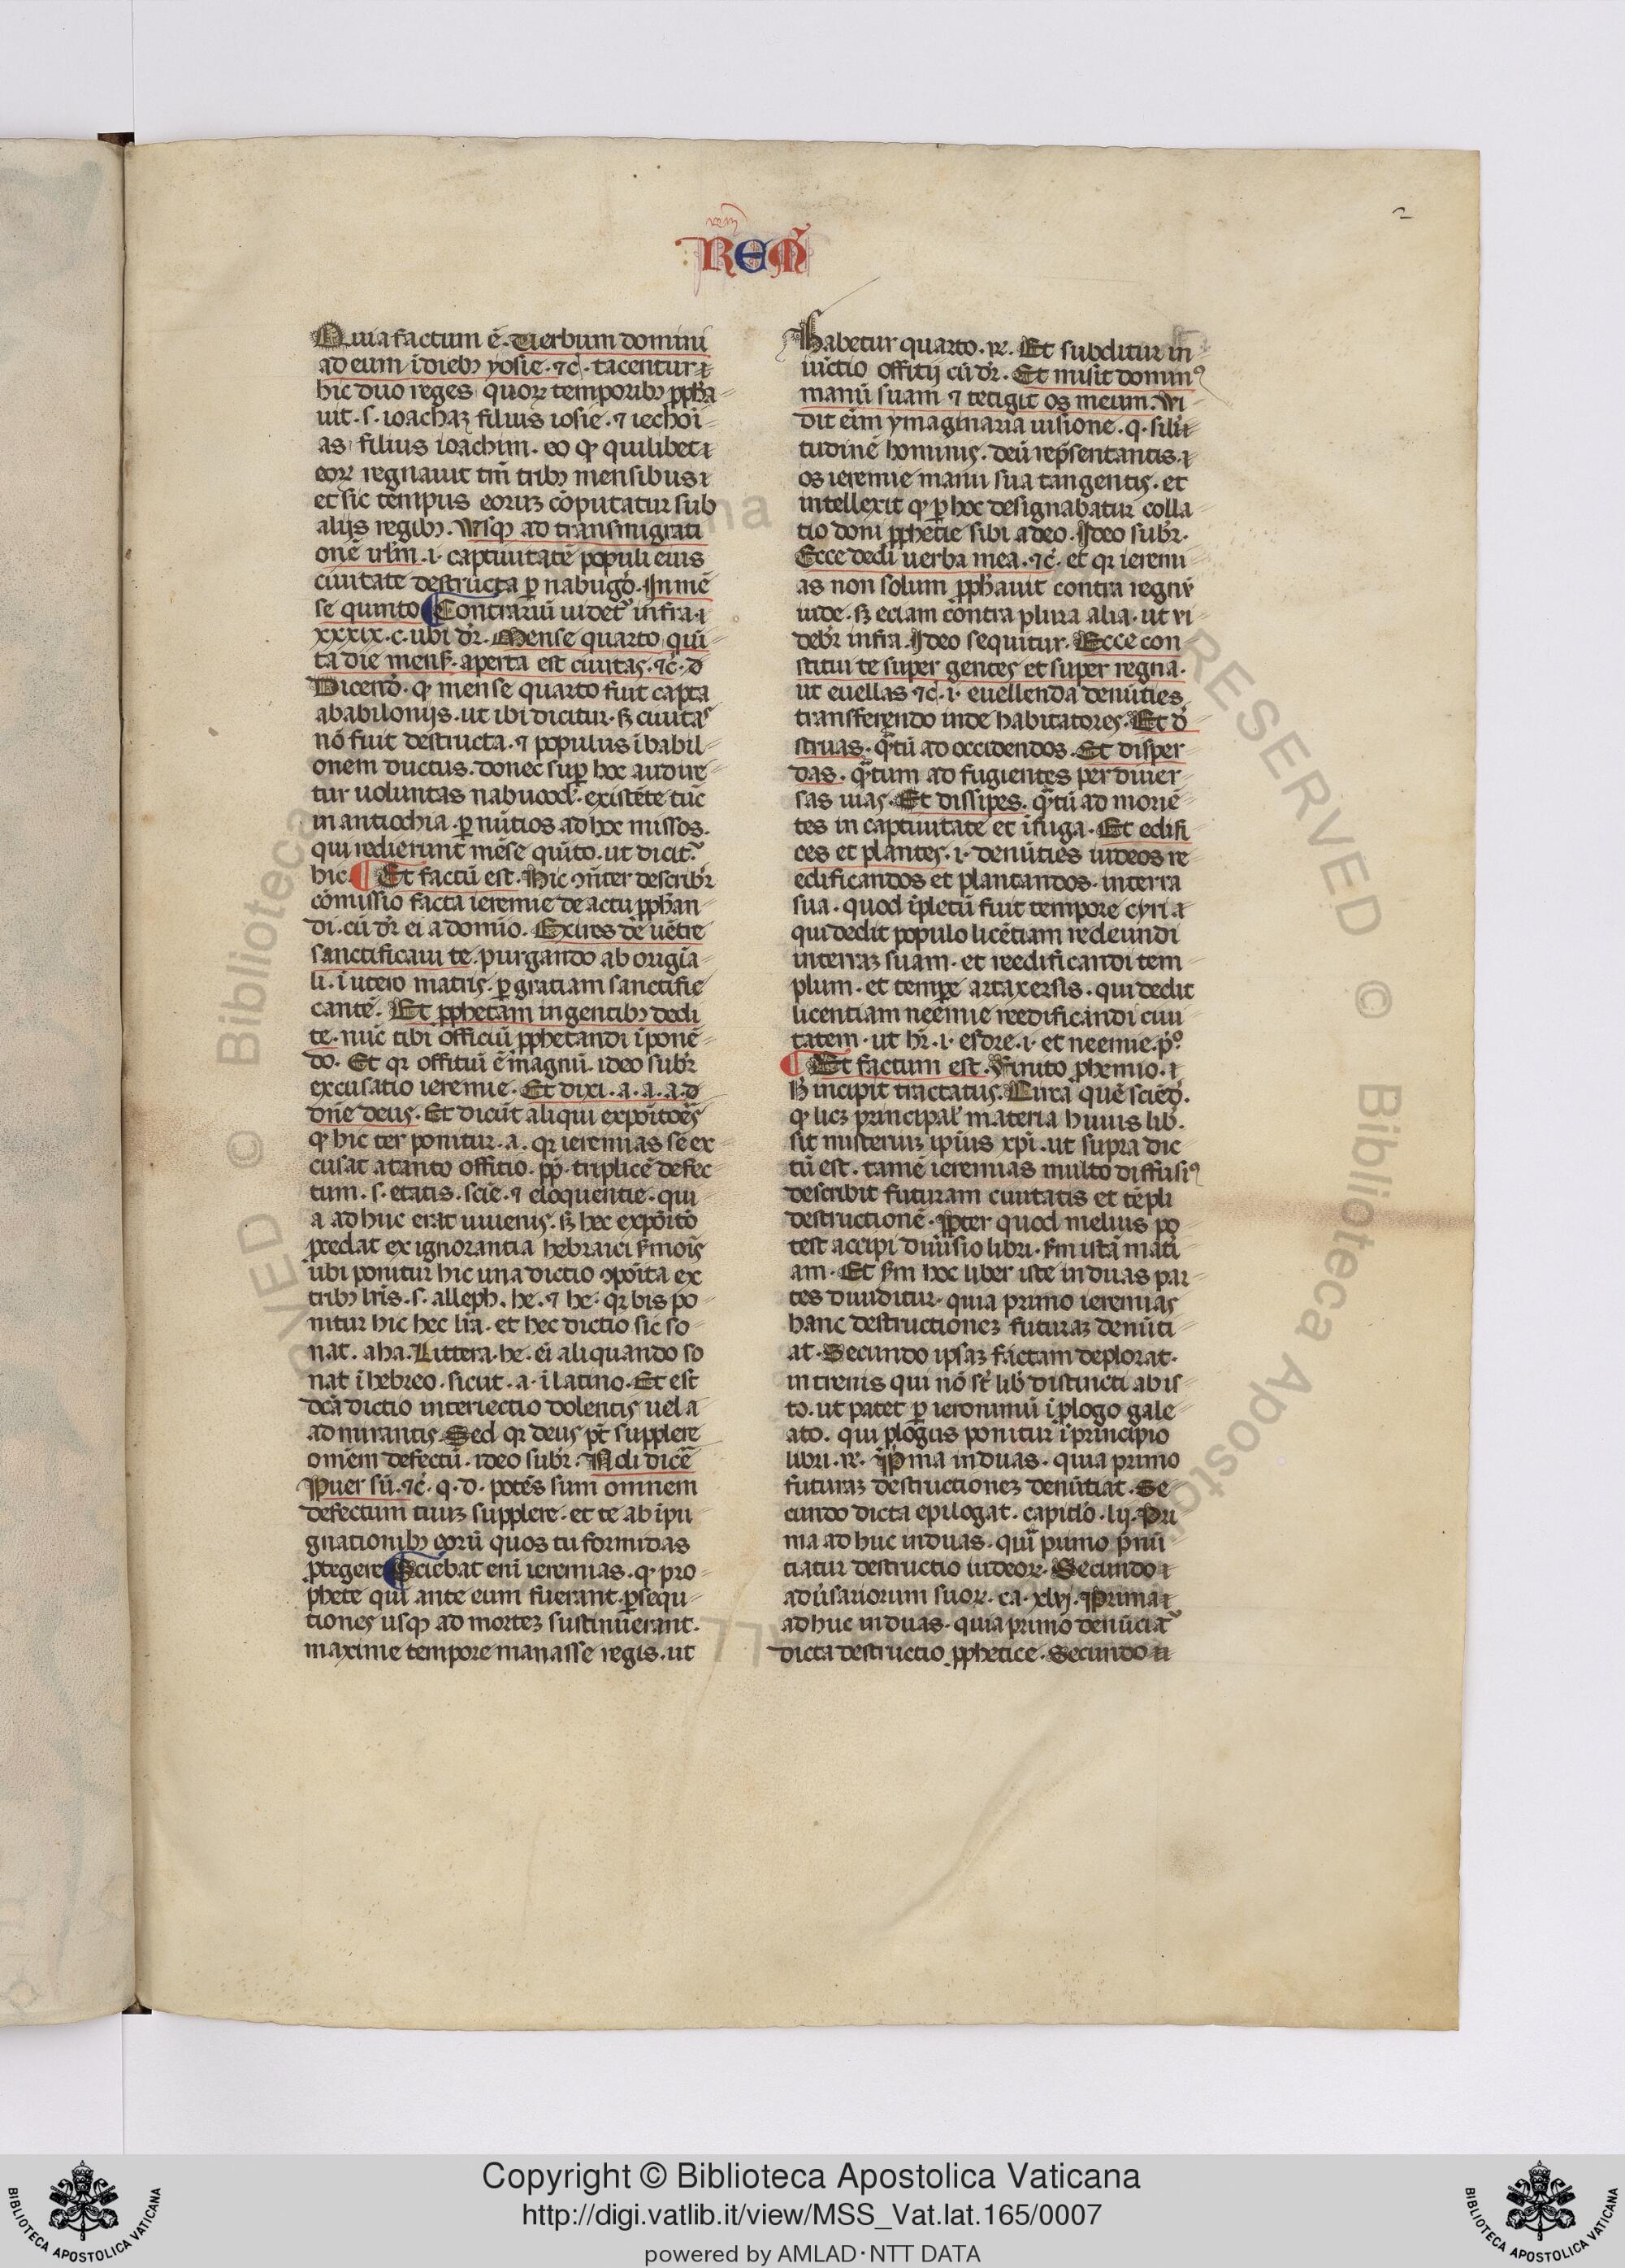 2
REM̃
Quia factum ē. Uerbum domini
ad eum ī diebꝫ yosie. ⁊c̄. tacentur
hic duo reges quoꝝ temporibꝫ ꝓpħa
uit. s. ioachaꝫ filius iosie. ⁊ iechoī
as filius ioachim. eo ꝙ quilibet
eoꝝ regnauit tm̄ tribꝫ mensibus
et sic tempus eoruꝫ cōputatur sub
alijs regibꝫ. Usqꝫ ad transmigrati
onē irlm̄ .i. captiuitatē populi eius
ciuitate destructa ꝑ nabugo᷒. In mē
se quinto Contrariū uidetᷣ infra
xxxix. c. ubi dr̄. Mense quarto quī
ta die mens̄. aperta est ciuitas. ⁊c̄. d
Dicend᷒. ꝙ mense quarto fuit capta
a babilonijs. ut ibi dicitur. sꝫ ciuitaˢ
nō fuit destructa. ⁊ populus ī babil
onem ductus. donec suꝑ hoc audire
tur uoluntas nabucod᷒. existēte tūc
in antiochia. ꝑ nūtios ad hoc missos.
qui redierunt mēse quīto. ut dicitᷣ
hic. Et factū est. Hic ꝯn̄ter describr̄
cōmissio facta ieremie de actu ꝓpħan
di. cū dr̄ ei a domīo. Exires de uētre
sanctificaui te. purgando ab origīa
li. ī utero matris. ꝑ gratiam sanctifi
cantē. Et ꝓpħetam in gentibꝫ dedi
te. nūc tibi officiū ꝓpħetandi īponē
do. Et qꝛ offitiū ē magnū. ideo subr̄
excusatio ieremie. Et dixi. a. a. a. d
dn̄e deus. Et dicūt aliqui expoītoēs
ꝙ hic ter ponitur. a. qꝛ ieremias sē ex
cusat a tanto offitio. ꝓꝑ triplicē defec
tum. s. etatis. scīe. ⁊ eloquentie. qui
a ad huc erat iuuenis. sꝫ hec expōito
ꝓcedat ex ignorantia hebraici s̄mois
ubi ponitur hic una dictio ꝯpōita ex
tribꝫ lr̄is. s. alleph. he. ⁊ he. qꝛ bis po
nitur hic hec lr̄a. et hec dictio sic so
nat. aha. Littera. he. ei aliquando so
nat ī hebreo. sicut. a. ī latino. Et est
dc̄a dictio interiectio dolentis uel a
admirantis. Sed qꝛ deus pt̄ supplere
omēm defectū. ideo subr̄. Noli dicē
Puer sū. ⁊c̄. q. d. potēs sum omnem
defectum tuuꝫ supplere. et te ab īpu
gnationibꝫ eorū quos tu formidas
ꝓtegere Sciebat eni ieremias. ꝙ pro
phete qui ante eum fuerant. ꝑsequ
tiones usqꝫ ad morteꝫ sustinuerant.
maxime tempore manasse regis. ut
Habetur quarto. ꝝ. Et subditur in
iūctio offitij cū dr̄. Et misit dominꝰ
manū suam ⁊ tetigit os meum. Vi
dit eīm ymaginaria uisione. q. sil'i
tudinē hominis. deū rep̄sentantis.
os ieremie manu sua tangentis. et
intellexit ꝙ ꝑ hoc designabatur colla
tio doni ꝓpħetie sibi a deo. Ideo subr̄.
Ecce dedi uerba mea. ⁊c̄. et qꝛ ieremi
as non solum ꝓpħauit contra regnū
iude. sꝫ eciam contra plura alia. ut vi
debr̄ infra. Ideo sequitur. Ecce con
stitui te super gentes et super regna.
ut euellas ⁊c̄ .i. euellenda denūties
transferendo inde habitatores. Et d᷒
struas. qᷓ̄tū ad occidendos. Et disper
das. qᷓ̄tum ad fugientes per diuer
sas uias. Et dissipes. qᷓ̄tū ad moriē
tes in captiuitate et ī fuga. Et edifi
ces et plantes .i. denūties iudeos re
edificandos et plantandos. in terra
sua. quod īpletū fuit tempore cyri
qui dedit populo licētiam redeundi
in terraꝫ suam. et reedificandi tem
plum. et tempꝛe artaxersis. qui dedit
licentiam neemie reedificandi ciui
tatem. ut hr̄ .i. esdre .i. et neemie. pº
Et factum est. Finito ꝓhemio.
h̄ incipit tractatus. Circa quē sciēd᷒.
ꝙ licꝫ principal' materia huius lib̄.
sit misteriuꝫ ip̄ius xp̄i. ut supra dic
tū est. tamē ieremias multo diffusiꝰ
describit futuram ciuitatis et tēpli
destructionē. ꝓpter quod melius po
test accipi diuisio libri. s̄m istā mat̄i
am. Et s̄m hoc liber iste in duas par
tes diuiditur. quia primo ieremias
hanc destructioneꝫ futuraꝫ denūti
at. Secundo ipsaꝫ factam deplorat.
in trenis qui nō st̄ lib̄ distincti ab is
to. ut patet ꝑ ieronimū ī ꝓlogo gale
ato. qui ꝓlogus ponitur ī principio
libri. ꝝ. Prima in duas. quia primo
futuraꝫ destructioneꝫ denūtiat. Se
cundo dicta epilogat. capitlo. lij. Pri
ma ad huc in duas. quī primo p̄nū
tiatur destructio iudeoꝝ. Secundo
aduersariorum suoꝝ. ca. xlvj. Prima
ad huc in duas. quia primo denūciatᷣ
dicta destructio ꝓpħetice. Secundo
Copyright © Biblioteca Apostolica Vaticana
http://digi.vatlib.it/view/MSS_Vat.lat.165/0007
powered by AMLAD·NTT DATA
BIBLIOTECA APOSTOLICA VATICANA
BIBLIOTECA APOSTOLICA VATICANA